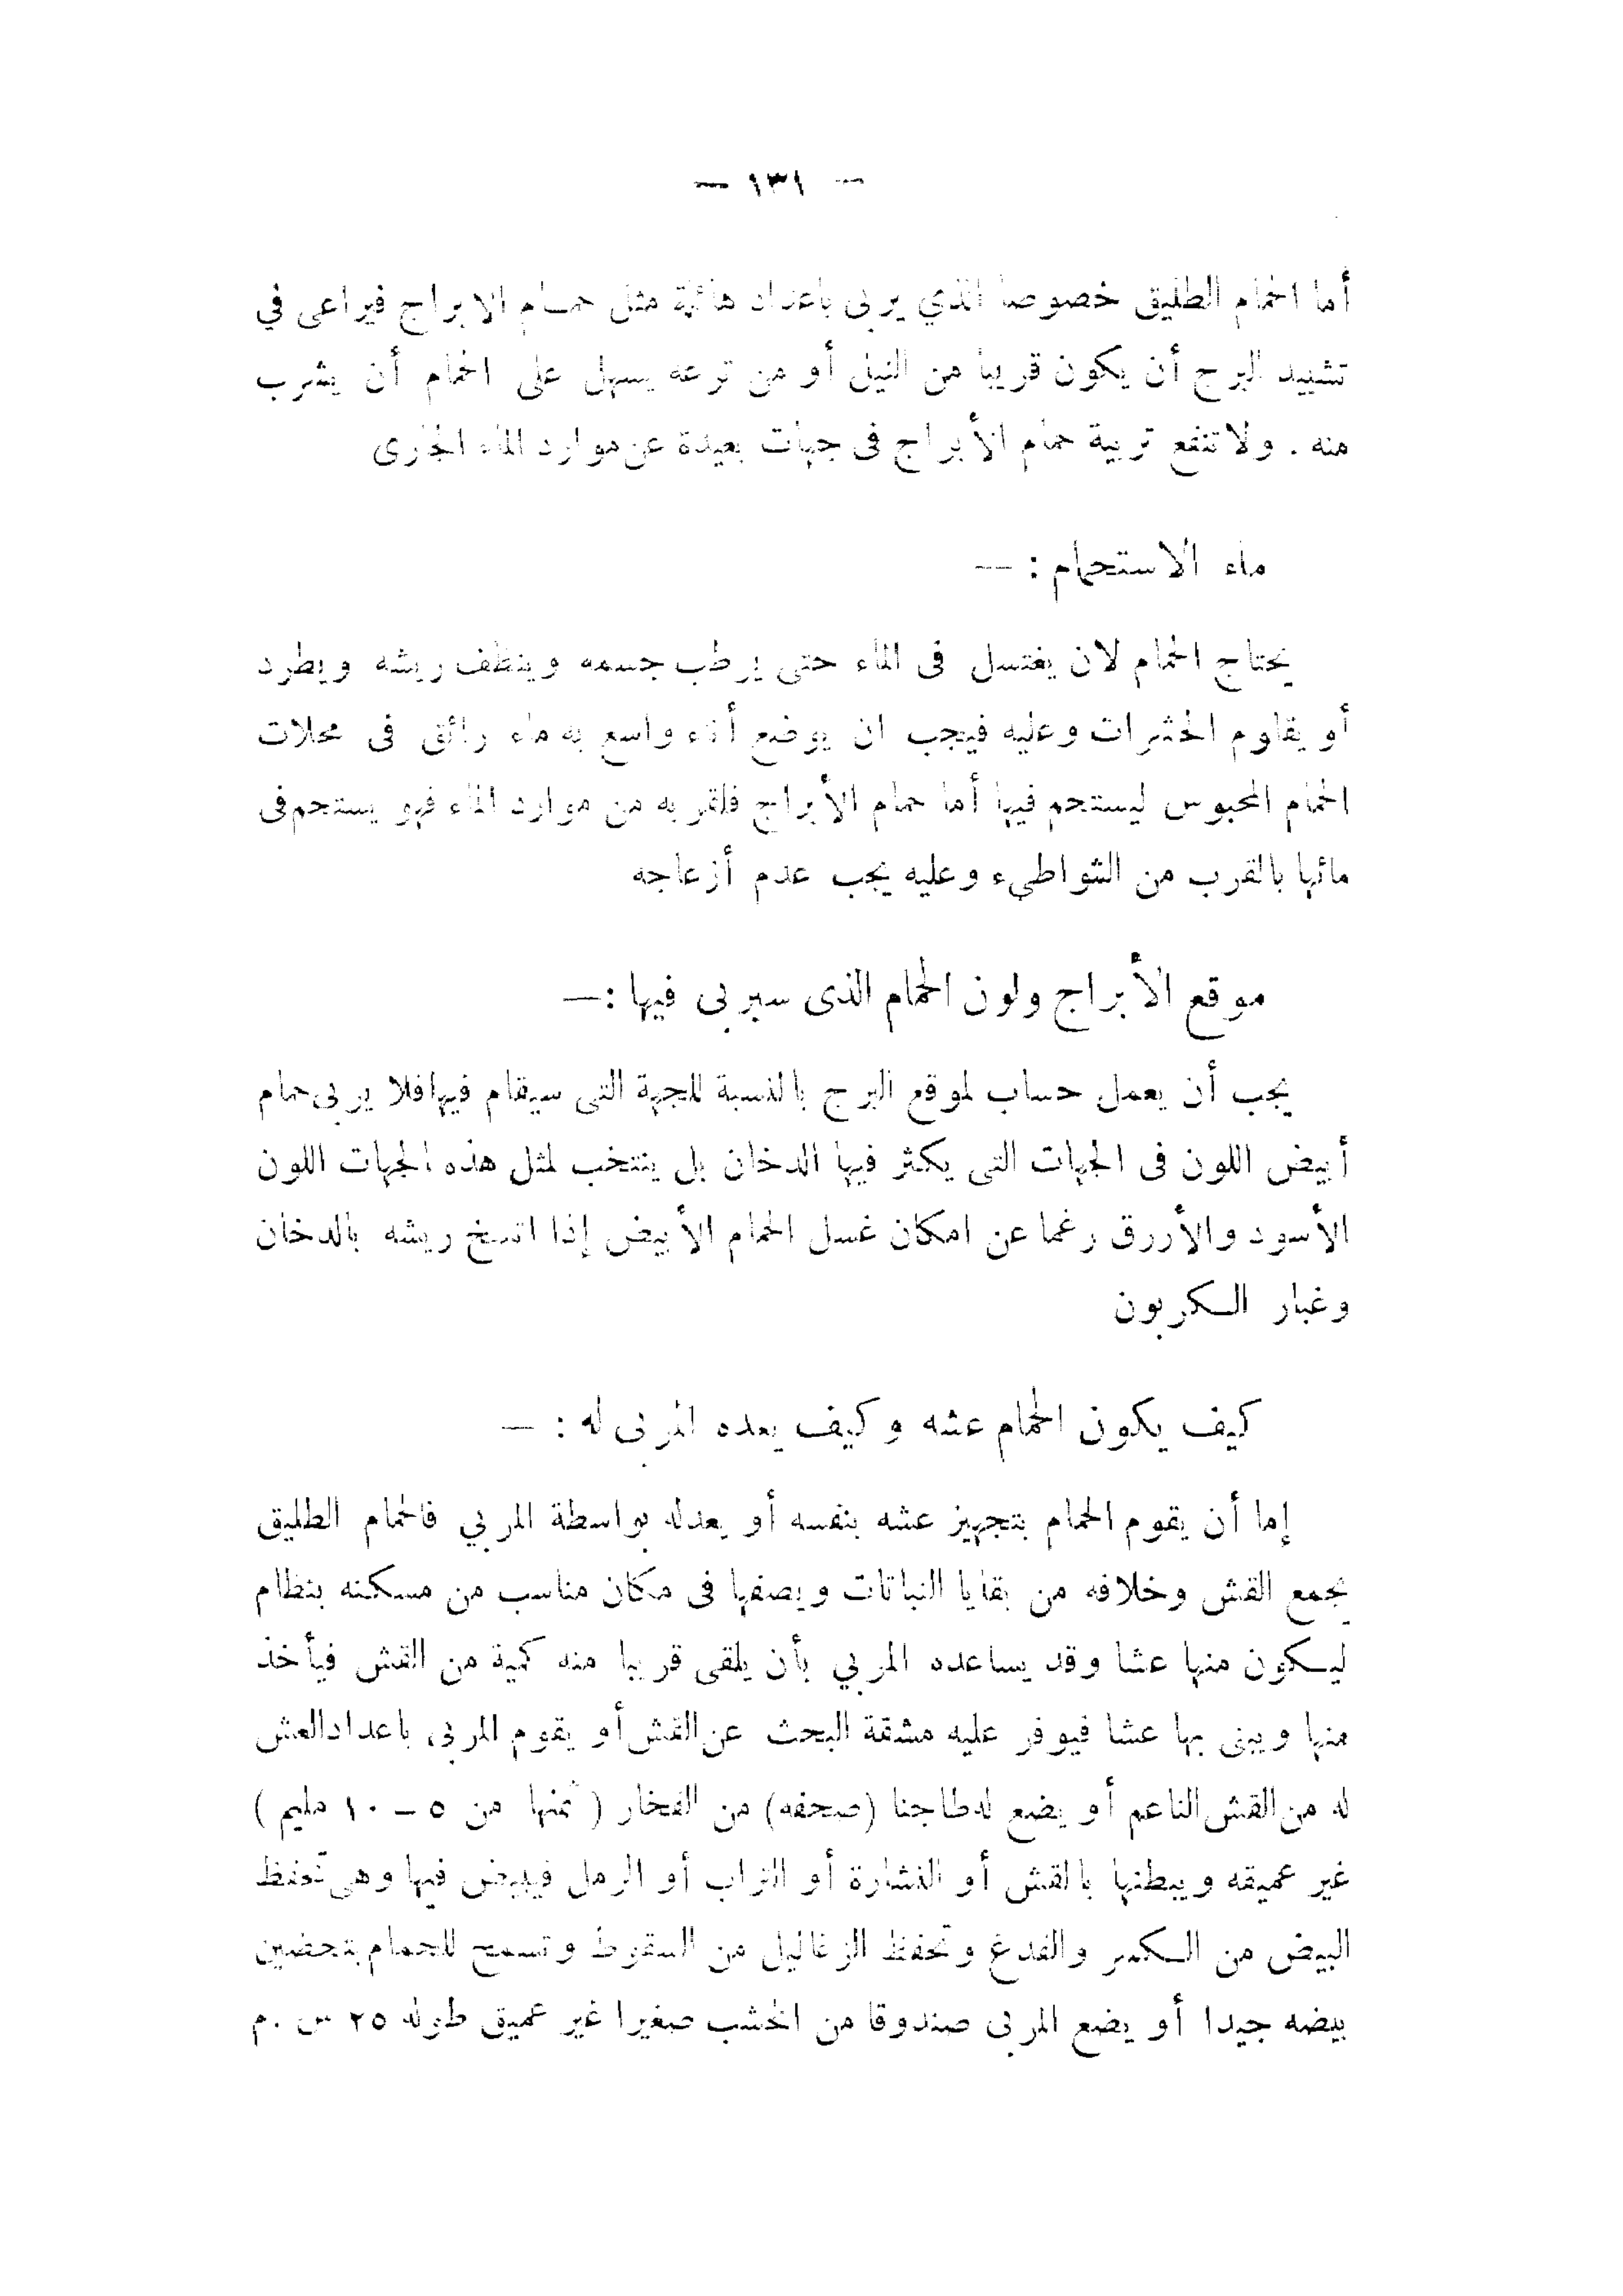 — ١٣١ —
أما الحمام الطليق خصوصا الذي يربى باعداد هائلة مثل حمام الابراج فيراعى في
تشييد البرج أن يكون قريبا من النيل أو من ترعه يسهل على الحمام أن يشرب
منه . ولا تنفع تربية حمام الأبراج فى جهات بعيدة عن موارد الماء الجارى
ماء الاستحمام : —
يحتاج الحمام لان يغتسل فى الماء حتى يرطب جسمه وينظف ريشه ويطرد
أو يقاوم الحشرات وعليه فيجب ان يوضع أناء واسع به ماء رائق فى محلات
الحمام المحبوس ليستحم فيها أما حمام الأبراج فلقربه من موارد الماء فهو يستحم فى
مائها بالقرب من الشواطىء وعليه يجب عدم أزعاجه
موقع الأبراج ولون الحمام الذى سيربى فيها :—
يجب أن يعمل حساب لموقع البرج بالنسبة للجهة التى سيقام فيها فلا يربى حمام
أبيض اللون فى الجهات التى يكثر فيها الدخان بل ينتخب لمثل هذه الجهات اللون
الأسود والأزرق رغما عن امكان غسل الحمام الأبيض إذا اتسخ ريشه بالدخان
وغبار الكربون
كيف يكون الحمام عشه وكيف يعده المربى له : —
إما أن يقوم الحمام بتجهيز عشه بنفسه أو يعدله بواسطة المربي فالحمام الطليق
يجمع القش وخلافه من بقايا النباتات ويصفها فى مكان مناسب من مسكنه بنظام
ليكون منها عشا وقد يساعده المربي بأن يلقى قريبا منه كمية من القش فيأخذ
منها ويبنى بها عشا فيوفر عليه مشقة البحث عن القش أو يقوم المربى باعداد العش
له من القش الناعم أو يضع له طاجنا (صحفه) من الفخار ( ثمنها من ٥ – ١٠ مليم )
غير عميقه ويبطنها بالقش أو النشارة أو التراب أو الرمل فيبيض فيها وهى تحفظ
البيض من الكسر والفدغ وتحفظ الزغاليل من السقوط وتسمح للحمام بتحضين
بيضه جيدا أو يضع المربى صندوقا من الخشب صغيرا غير عميق طوله ٢٥ س .م